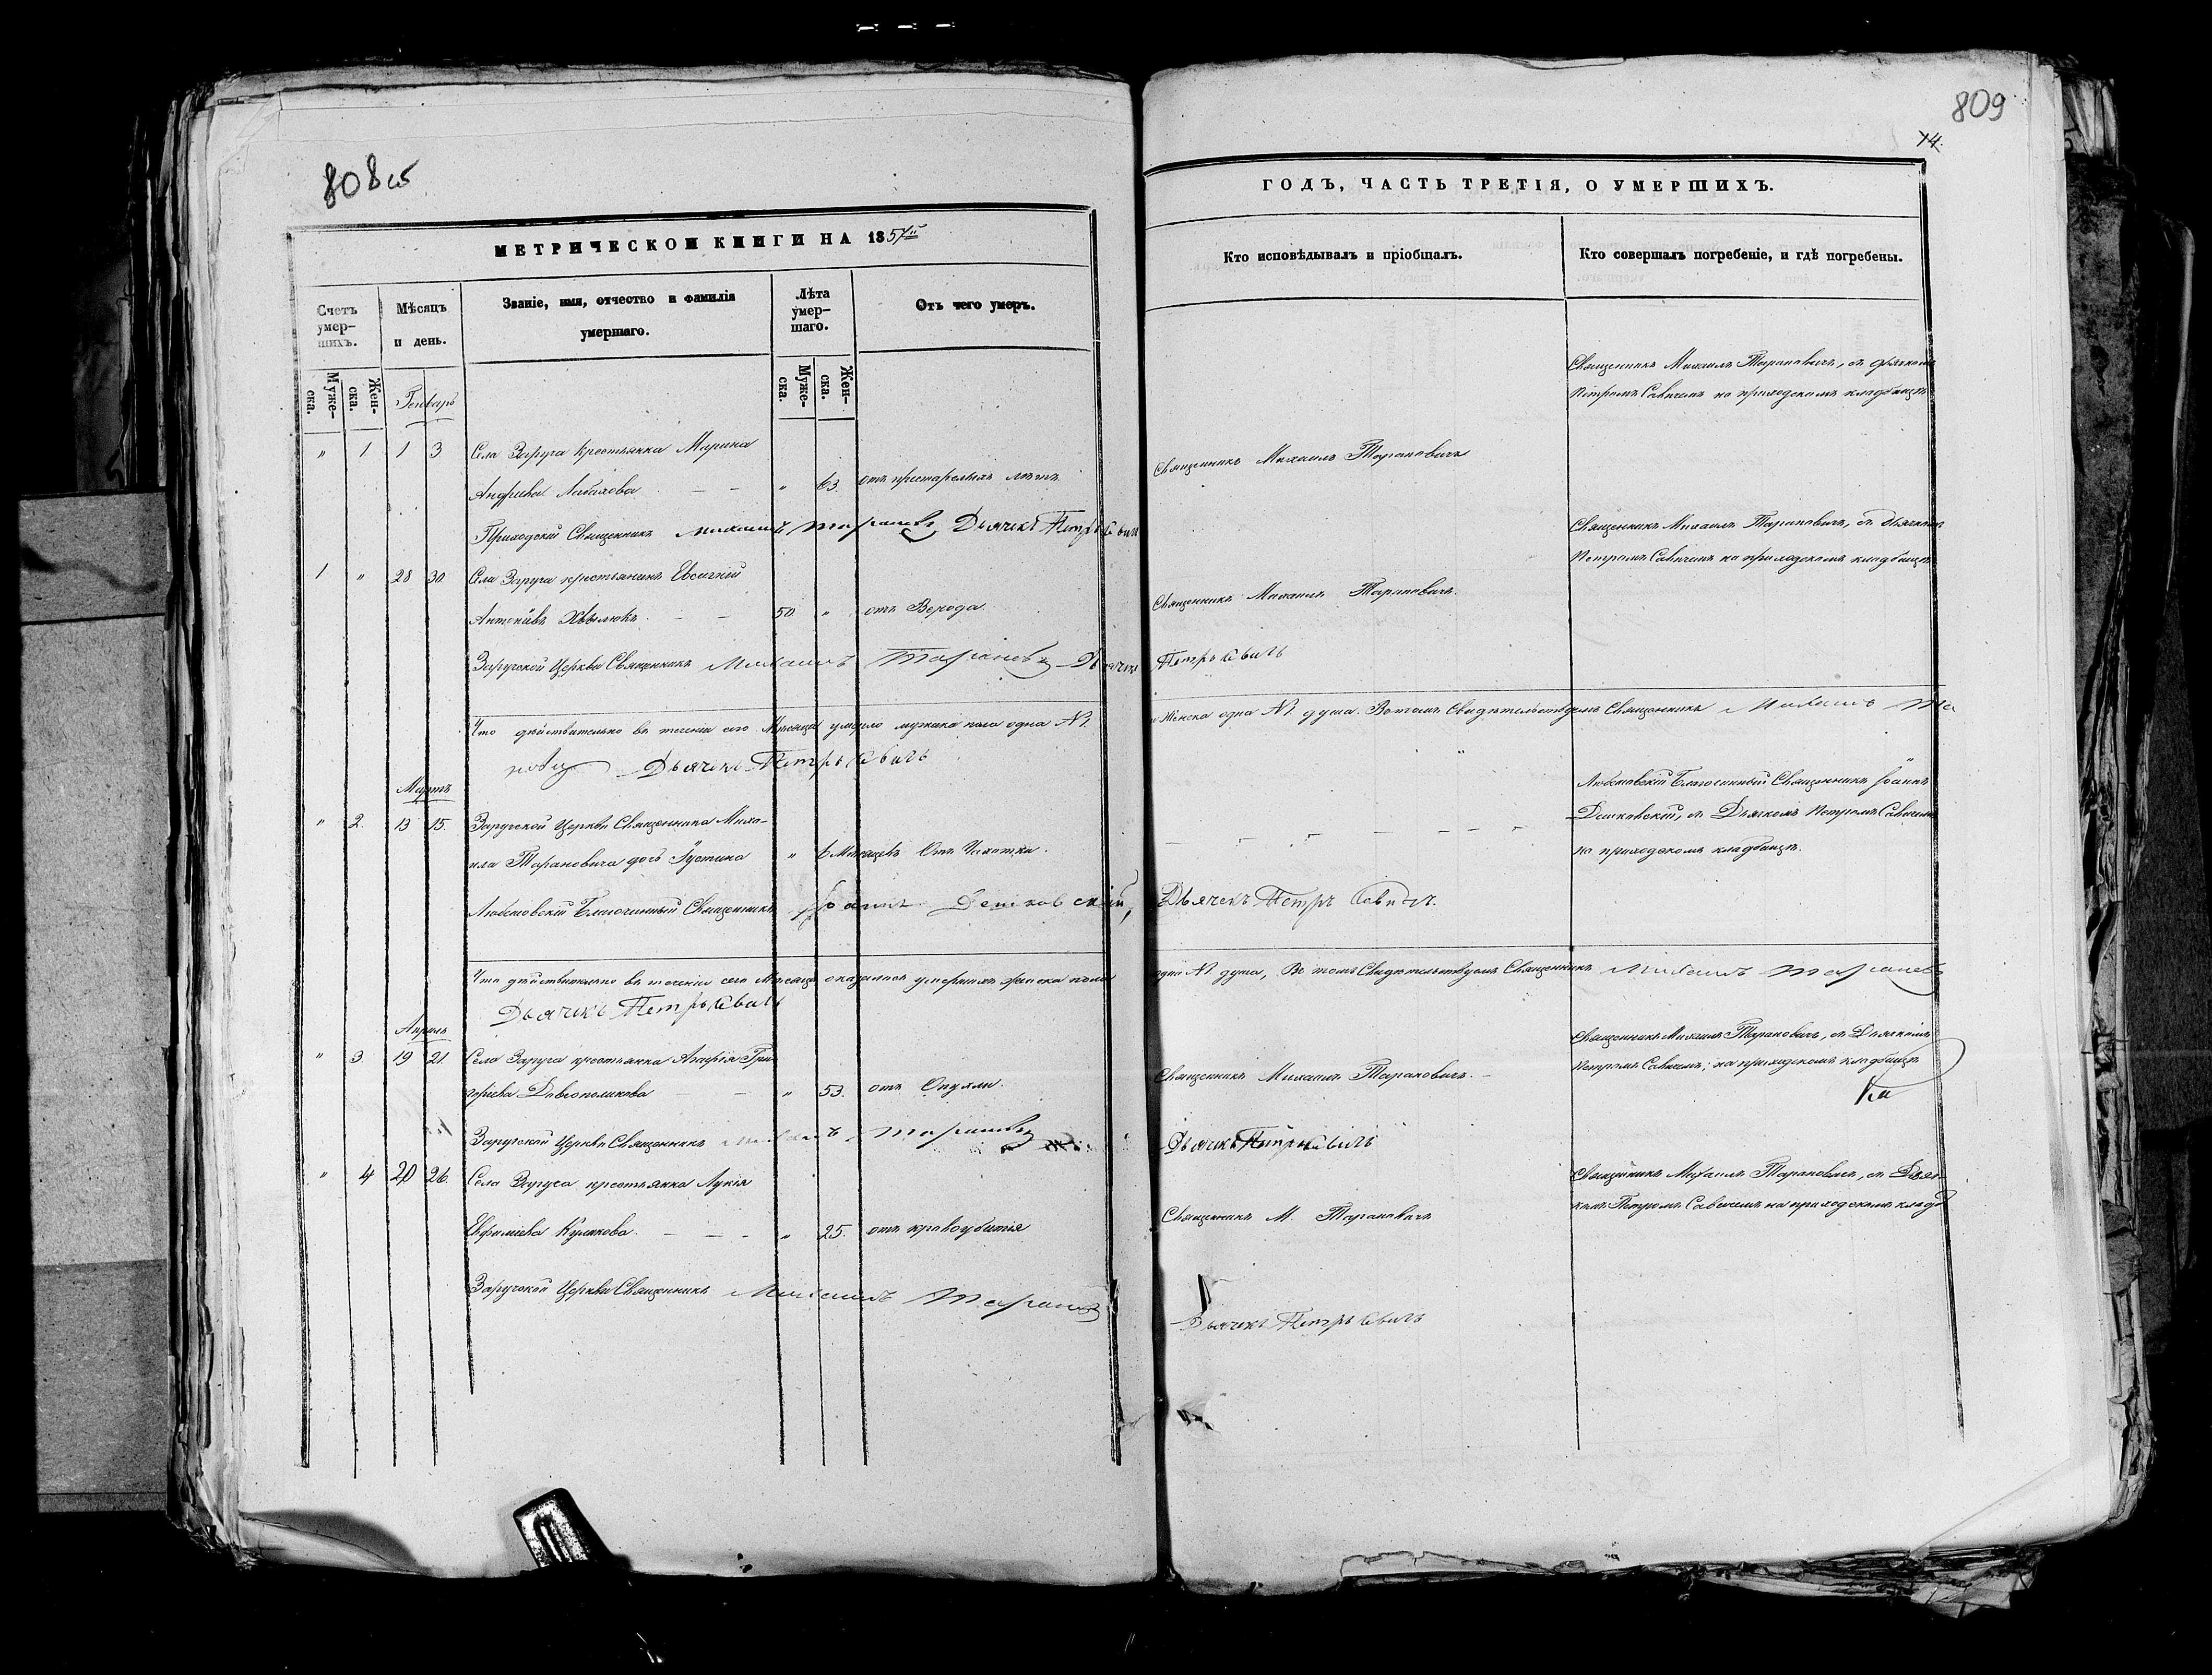 808 об
809
14.
МЕТРИЧЕСКОЙ КНИГИ НА 1857й
ГОДЪ, ЧАСТЬ ТРЕТІЯ, О УМЕРШИХЪ.
Счетъ умер-шихъ.
Муже-ска.
Жен-ска.
Мѣсяцъ и день.
Званіе, имя, отчество и фамилія
умершаго.
Лѣта умер-шаго.
Муже-ска.
Жен-ска.
Отъ чего умеръ.
Кто исповѣдывалъ и пріобщалъ.
Кто совершалъ погребеніе, и гдѣ погребены.
Генварь
" 1 1 3 Села Заруга крестьянка Марина
Андреева " 63. отъ престарелыхъ лѣтъ.
Священникъ Михаилъ Тарановичъ
Священникъ Михаилъ Тарановичъ, съ дьячкомъ
Петромъ Савичемъ на приходскомъ кладбищѣ
Приходскій Священникъ Михаилъ Тарановичъ Дьячекъ Петръ Савич
1 " 28 30 Села Заруга крестьянинъ
50 " отъ Вереда
Священникъ Михаилъ Тарановичъ.
Священникъ Михаилъ Тарановичъ, съ дьячкомъ
Петромъ Савичемъ на приходскомъ кладбищѣ
Заругской Церкви Священникъ Михаилъ Тарановичъ Дьячекъ Петръ Савичъ
Что дѣйствительно въ теченіи сего Мѣсяца умерло мужска пола одна №1. и Женска одна №1 душа. Въ томъ Свидѣтельствуемъ Священникъ Михаилъ Та
рановичъ Дьячекъ Петръ Савичъ
Мартъ
" 2. 13 15. Заругской Церкви Священника Миха-
ила Тарановича дочь Іустина " 6 Мѣсяцевъ Отъ Чахотки.
Благочинный Священникъ Іоаннъ
Дешковскій, съ Дьячкомъ Петромъ Савичемъ
на приходскомъ кладбищѣ.
Благочинный Священникъ Іоаннъ Дешковскій, Дьячекъ Петръ Савичъ.
Что дѣйствительно въ теченіи сего Мѣсяца оказалось умершихъ женска пола одна №1 душа, Въ томъ Свидѣтельствуемъ Священникъ Михаилъ Тарановичъ
Дьячекъ Петръ Савичъ
Апрель
" 3 19 21. Села Заруга крестьянка Агафія Гри-
горіева " 53. отъ Опухли.
Священникъ Михаилъ Тарановичъ.
Священникъ Михаилъ Тарановичъ, съ Дьячкомъ
Петромъ Савичемъ, на приходскомъ кладбищѣ
Заругской Церкви Священникъ Михаилъ Тарановичъ
Дьячекъ Петръ Савичъ
" 4 20 26. Села Заруга крестьянка Лукія
Ефиміева Куликова. " 25. отъ
Священникъ М. Тарановичъ
Священникъ Михаилъ Тарановичъ, съ Дьяч-
комъ Петромъ Савичемъ на приходскомъ кладб
Заругской Церкви Священникъ Михаилъ Тарановичъ
Дьячекъ Петръ Савичъ